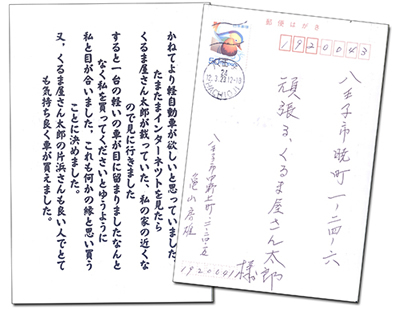 かねてより軽自動車が欲しいと思っていました
たまたまインターネットを見たら
くるま屋さん太郎が載っていた、私の家の近くな
ので見に行きました
すると一台の軽いの車が目に留まりましたなんと
なく私を買ってくださいとゆうように
私と目が合いました、これも何かの縁と思い買う
ことに決めました。
又、くるま屋さん太郎の片浜さんも良い人でとて
も気持ち良く車が買えました。
郵便はがき
1920043
八王子市暁町一ー二四ー六
頑張る、くるま屋さん太郎
様
八王子市中野上町
1920041